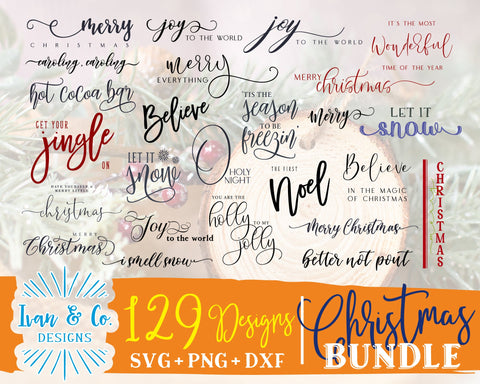 merry
CHRISTMAS
joy
TO THE WORLD
joy
TO THE WORLD
IT'S THE MOST
Wonderful
TIME OF THE YEAR
caroling, caroling
merry
EVERYTHING
MERRY
christmas
hot cocoa bar
Believe
'TIS THE
season
TO BE
freezin'
merry
LET IT
snow
GET YOUR
jingle
ON
LET IT
snow
O
HOLY
NIGHT
THE FIRST
Noel
Believe
IN THE MAGIC
OF CHRISTMAS
CHRISTMAS
HAVE YOURSELF A
MERRY LITTLE
christmas
Joy
to the world
YOU ARE THE
holly
TO MY
jolly
Merry Christmas
MERRY
Christmas
i smell snow
better not pout
Ivan & Co.
DESIGNS
129 Designs
SVG + PNG + DXF
Christmas
BUNDLE